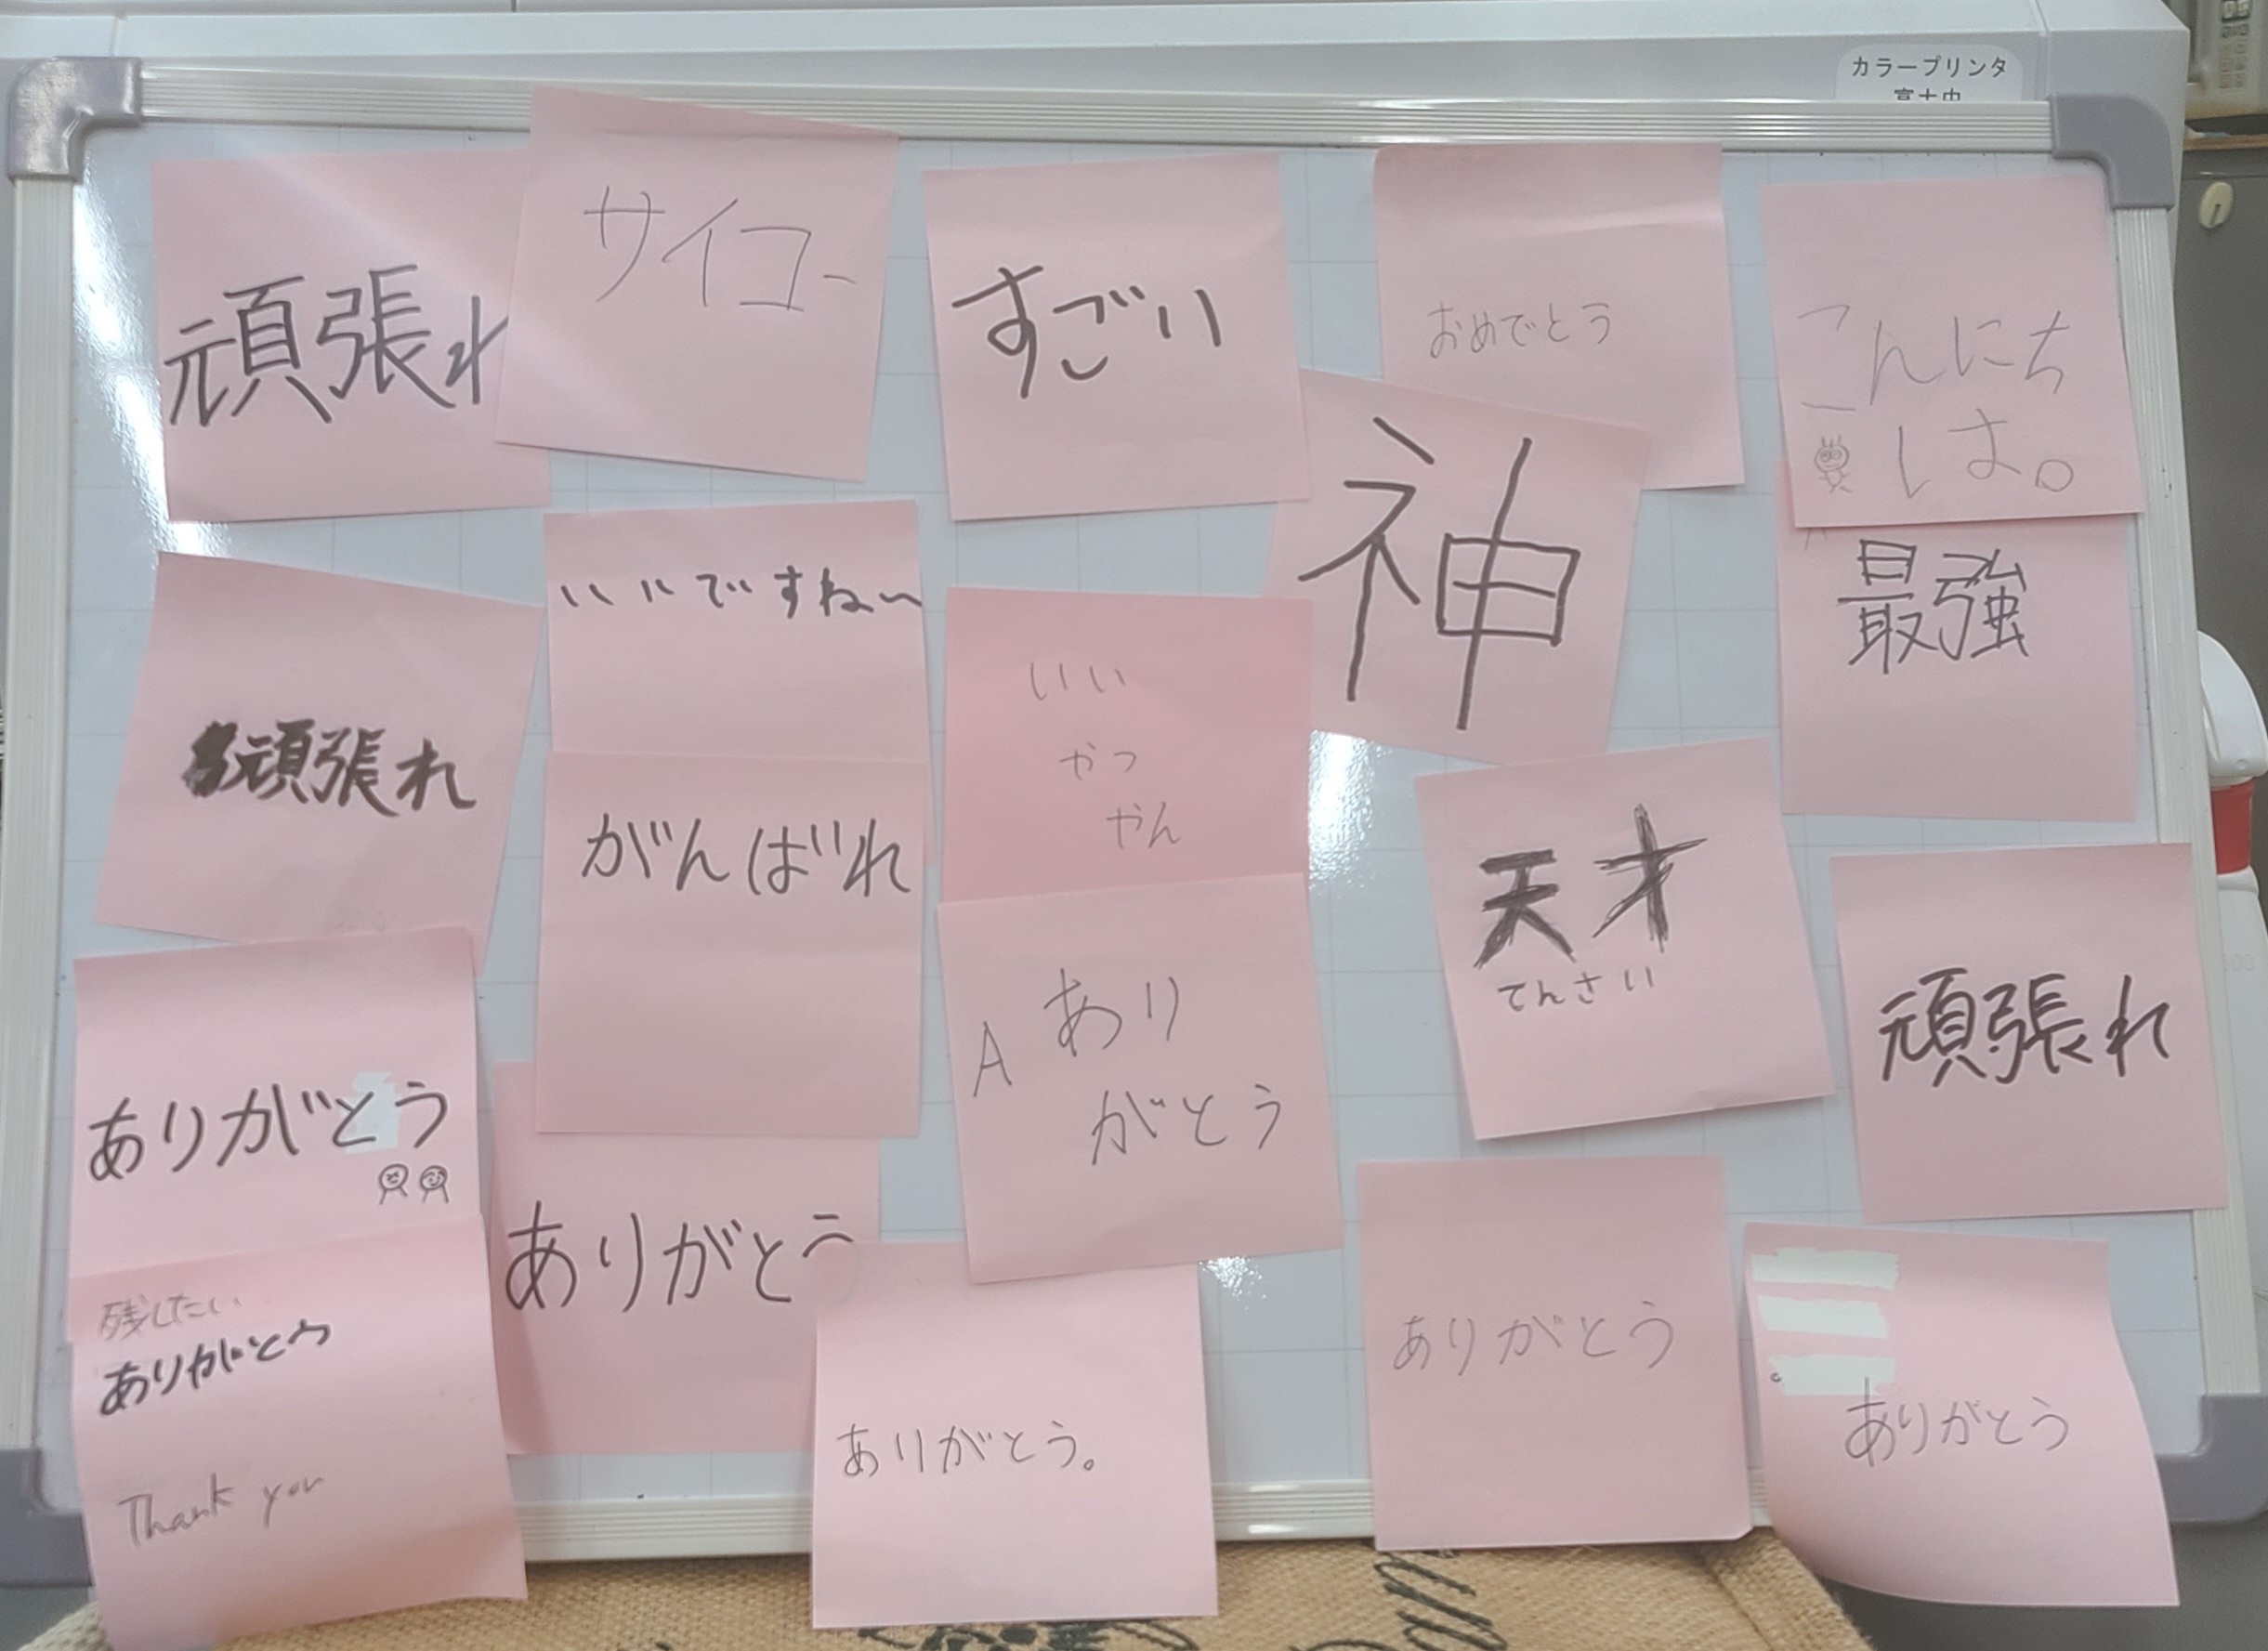 カラープリンタ
頑張れ
サイコー
すごい
おめでとう
こんにち
は。
神
最強
頑張れ
いいですねー
いい
やつ
やん
がんばれ
天才
てんさい
頑張れ
A
あり
がとう
ありがとう
ありがとう
残したい
ありがとう
Thank you
ありがとう。
ありがとう
ありがとう